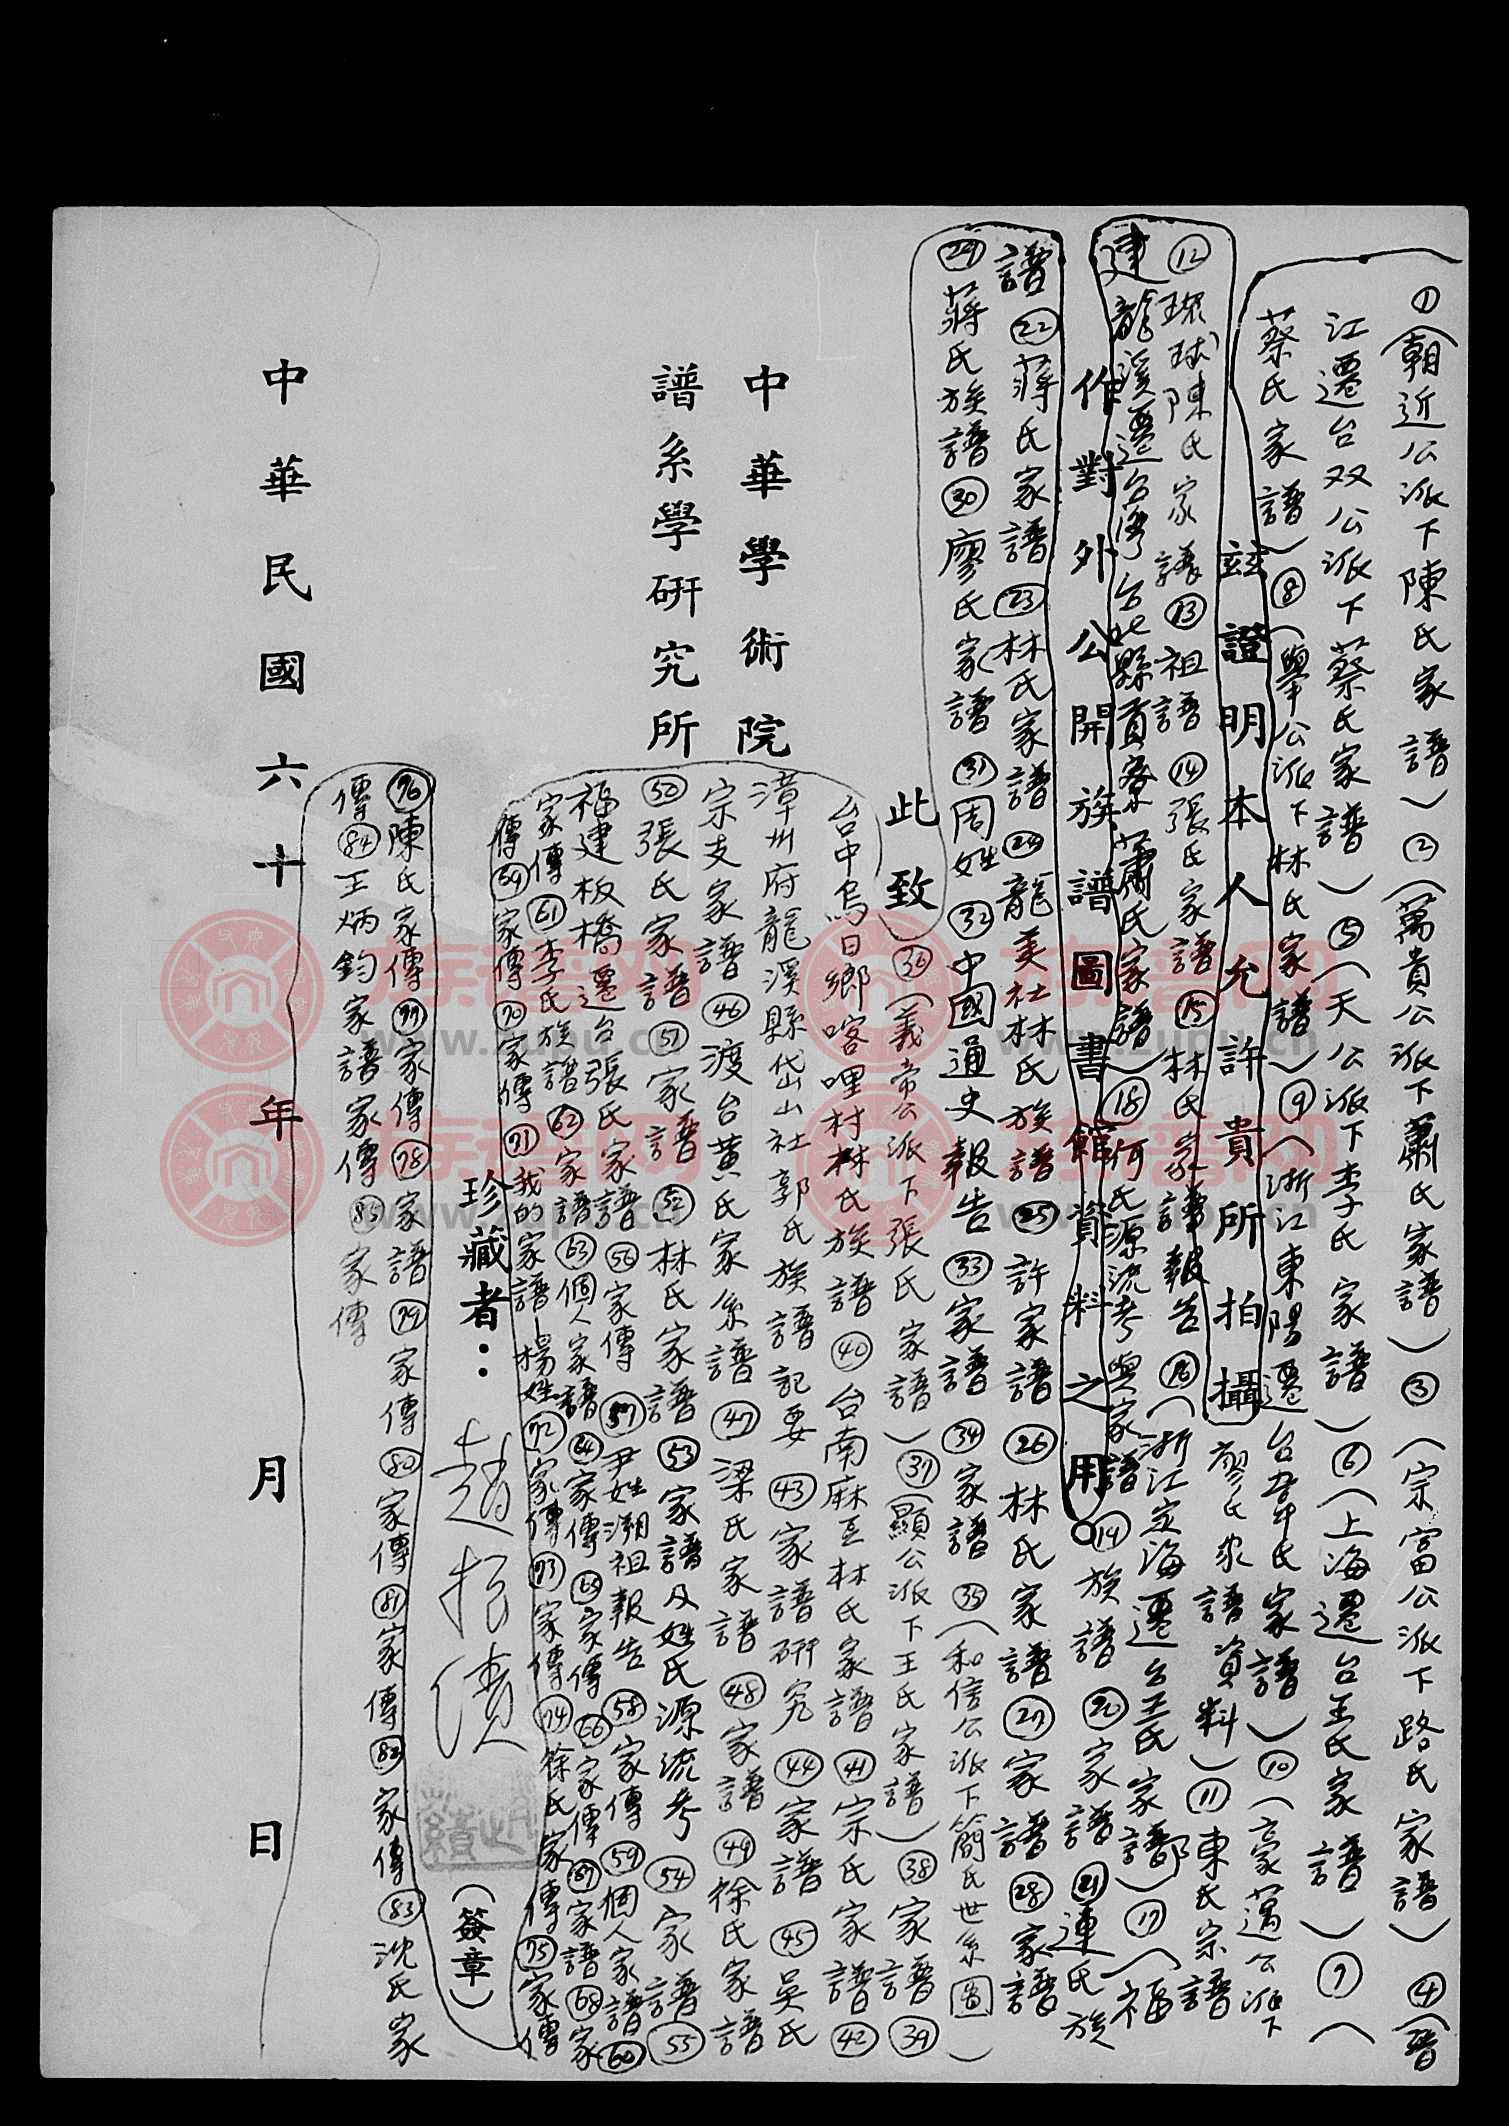 ①(朝近公派下陳氏家譜)②(萬貴公派下蕭氏家譜)③(宗富公派下路氏家譜)④(晉
江遷台双公派下蔡氏家譜)⑤(天公派下李氏家譜)⑥(上海遷台王氏家譜)⑦(
蔡氏家譜)⑧(舉公派下林氏家譜)⑨(浙江東陽遷台韋氏家譜)⑩(豪邁公派下
廖氏家譜資料)⑪東氏宗譜
茲證明本人允許貴所拍攝
⑫琅玡陳氏家譜⑬祖譜⑭張氏家譜⑮林氏家譜報告⑯(浙江定海遷台王氏家譜)⑰(福
建龍溪遷台灣台北縣貢寮蕭氏家譜)⑱何氏源流考與家譜⑲族譜⑳家譜㉑連氏族
作對外公開族譜圖書館資料之用。
譜㉒蔣氏家譜㉓林氏家譜㉔龍美社林氏族譜㉕許家譜㉖林氏家譜㉗家譜㉘家譜
㉙蔣氏族譜㉚廖氏家譜㉛周姓㉜中國通史報告㉝家譜㉞家譜㉟(和信公派下簡氏世系圖)
此致
㊱(義帝公派下張氏家譜)㊲(顯公派下王氏家譜)㊳家譜㊴
台中烏日鄉喀哩村林氏族譜㊵台南麻豆林氏家譜㊶宗氏家譜㊷
漳州府龍溪縣岱山社郭氏族譜記要㊸家譜研究㊹家譜㊺吳氏
宗支家譜㊻渡台黄氏家系譜㊼梁氏家譜㊽家譜㊾徐氏家譜
㊿張氏家譜(51)家譜(52)林氏家譜(53)家譜及姓氏源流考(54)家譜(55)
福建板橋遷台張氏家譜(56)家傳(57)尹姓溯祖報告(58)家傳(59)個人家譜(60)
家傳(61)李氏族譜(62)家譜(63)個人家譜(64)家傳(65)家傳(66)家傳(67)家譜(68)家
傳(69)家傳(70)家傳(71)我的家譜—楊姓(72)家傳(73)家傳(74)徐氏家傳(75)家傳
中華學術院
譜系學研究所
珍藏者：趙振績(簽章)
(76)陳氏家傳(77)家傳(78)家譜(79)家傳(80)家傳(81)家傳(82)家傳(83)沈氏家
傳(84)王炳鈞家譜家傳(85)家傳
中華民國六十年月日
族谱网
www.zupu.cn